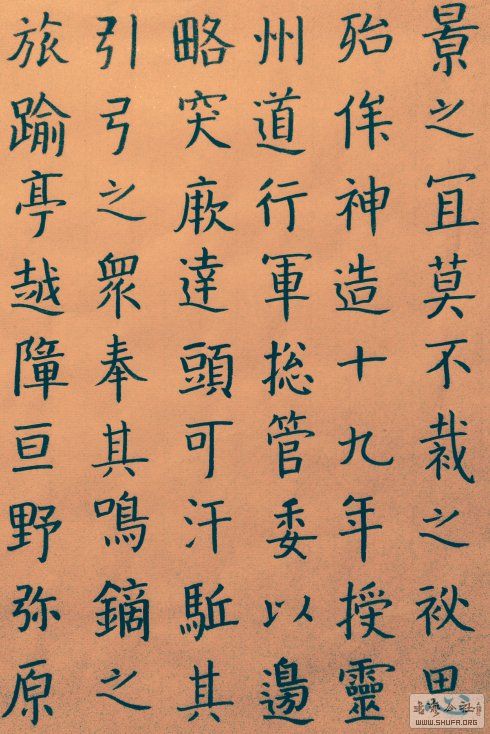 景之冝莫不裁之袐思
殆侔神造十九年授靈
州道行軍総管委以邊
略突厥達頭可汗駈其
引弓之眾奉其鳴鏑之
旅踰亭越障亘野弥原
WWW.SHUFA.ORG